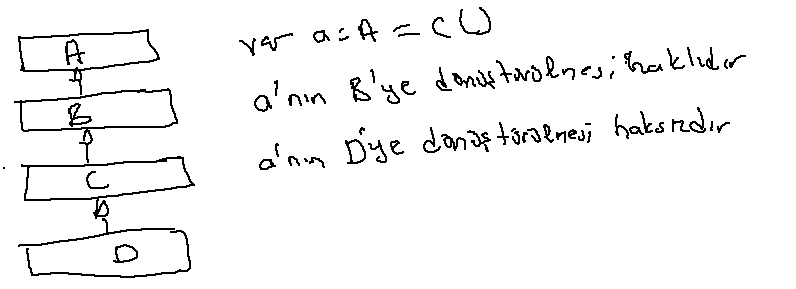 A
B
C
D
var a:A = C()
a'nın B'ye dönüştürülmesi haklıdır
a'nın D'ye dönüştürülmesi haksızdır